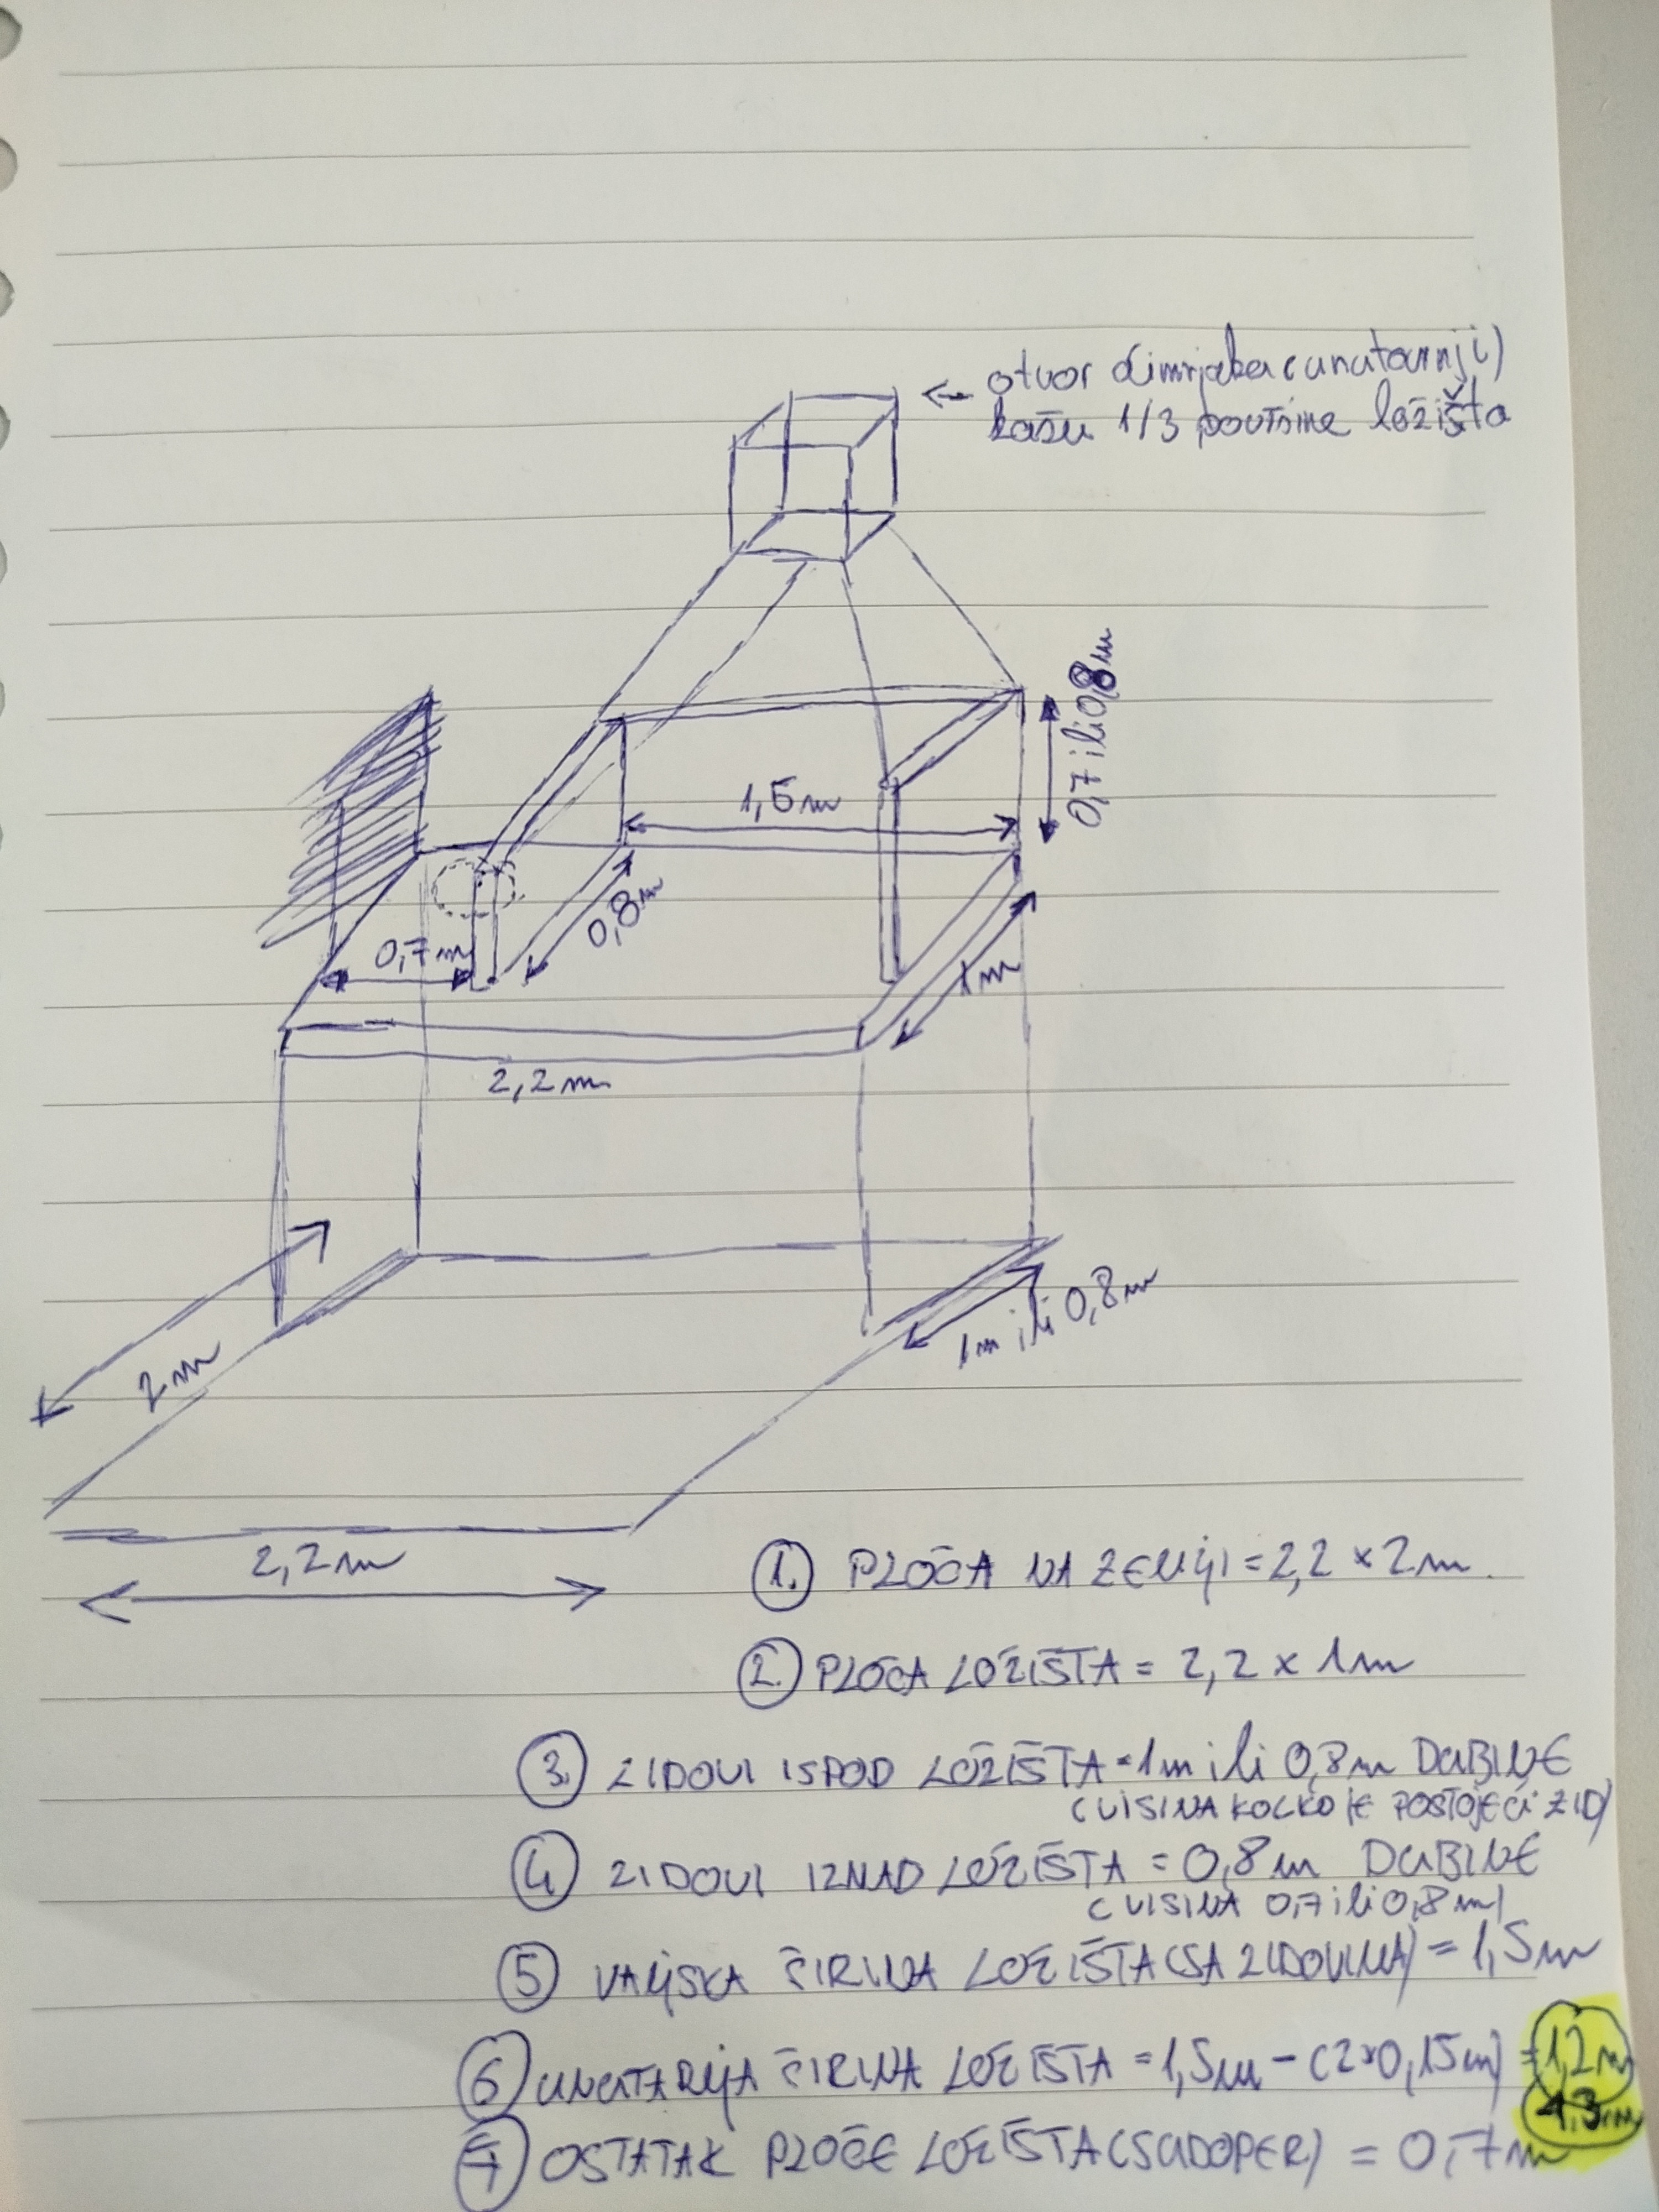 ← otvor dimnjaka (unutarnji)
kažu 1/3 površine ložišta
0,7 ili 0,8m
1,5m
0,8m
0,7m
1m
2,2m
1m ili 0,8m
2m
2,2m
1. PLOČA NA ZEMLJI = 2,2 x 2m.
2. PLOČA LOŽIŠTA = 2,2 x 1m
3. ZIDOVI ISPOD LOŽIŠTA = 1m ili 0,8m DUBINE
(VISINA KOLKO JE POSTOJEĆI ZID)
4 ZIDOVI IZNAD LOŽIŠTA = 0,8m DUBINE
(VISINA 0,7 ili 0,8m)
5 VANJSKA ŠIRINA LOŽIŠTA (SA ZIDOVIMA) = 1,5m
6 UNUTARNJA ŠIRINA LOŽIŠTA = 1,5m - (2x0,15m) = 1,2m
1.3m
7 OSTATAK PLOČE LOŽIŠTA (SUDOPER) = 0,7m